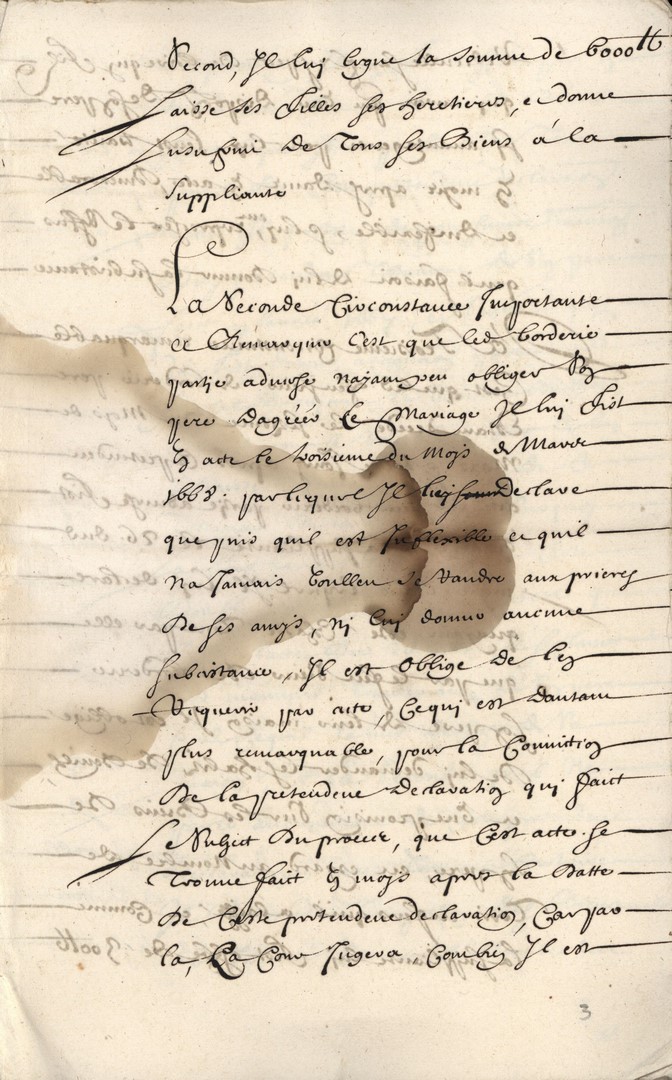 Second, Il luy legue la somme de 6000 lt
Laisse ses filles ses heretieres, et donne
Lusufruit de Tous ses Biens à la
suppliante
La Seconde Circonstance Importante
et Remarquer Cest que led borderie
partie aduerse nayant peu obliger son
pere dagréer le Mariage Il luy fist
un acte le troisieme du Mois de Mars
1668. par lequel Il luy declare
que puis quil est Inflexible et quil
na Jamais voulleu se Randre aux prieres
de ses amys, ny luy donner aucune
subcistance, Il est oblige de len
Requerir par acte, Ce qui est dautant
plus remarquable, pour la Conviction
De la pretendeue Declaration qui faict
Le Subject Du procez, que Cest acte se
Trouue faict un mois apres la Datte
De Ceste pretendeue declaration, Car par
la, La Cour Jugera, Combien Il est
3